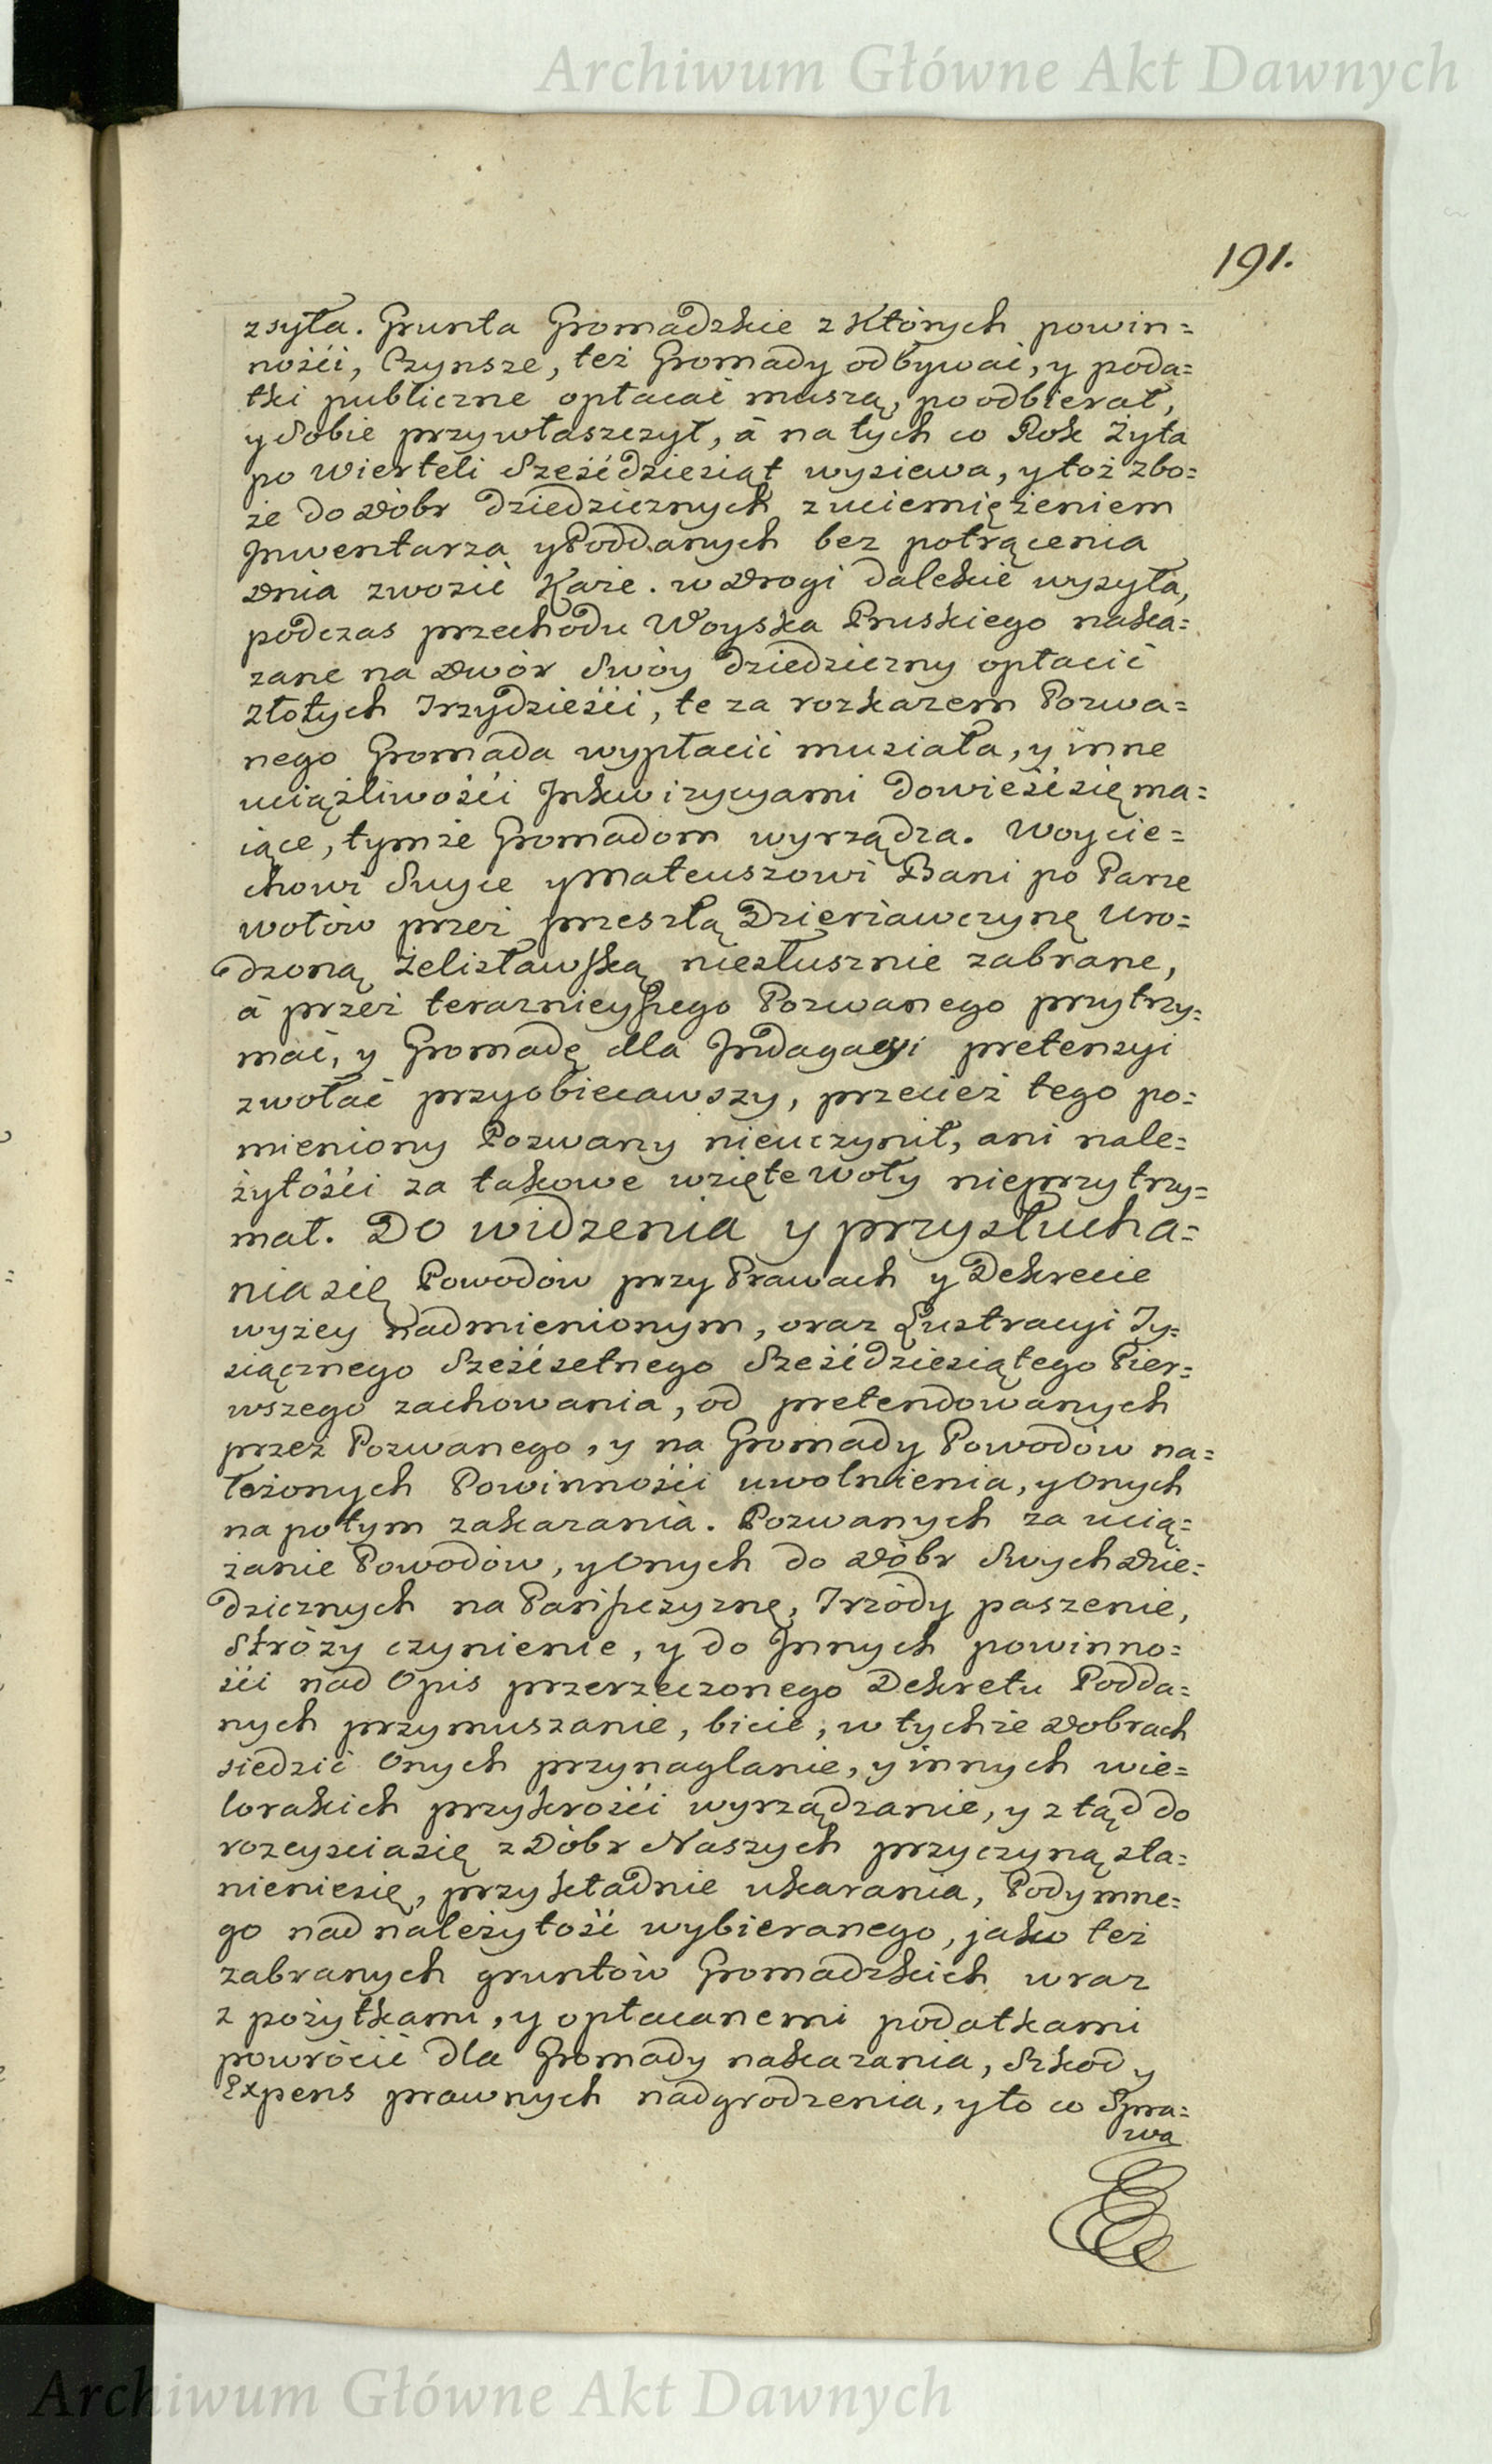 Archiwum Główne Akt Dawnych
191.
zsyła. Grunta Gromadzkie z Których powin=
nośći, Czynsze, też Gromady odbywać, y poda=
tki publiczne opłacać muszą, poodbierał,
y Sobie przywłaszczył, á na tych co Rok Żyta
po Wierteli Sześćdziesiąt wysiewa, y toż zbo=
że do Dóbr Dziedzicznych z uciemiężeniem
Jnwentarza y Poddanych bez potrącenia
Dnia zwozić Każe. w Drogi dalekie wysyła,
podczas przechodu Woyska Pruskiego naka=
zane na Dwór Swóy Dziedziczny opłacić
Złotych Trzydzieśći, te za rozkazem Pozwa=
nego Gromada wypłacić musiała, y inne
uciążliwośći Jnkwizycyami dowieść się ma=
iące, tymże Gromadom wyrządza. Woycie=
chowi Suyce y Mateuszowi Bani po Parze
wołów przez przeszłą Dzierżawczynę Uro=
dzoną Żelisławską niesłusznie zabrane,
á przez teraznieyszego Pozwanego przytrzy=
mać, y Gromadę dla Jndagacyi pretensyi
zwołać przyobiecawszy, przecież tego po=
mieniony Pozwany nieuczynił, ani nale=
żytośći za takowe wzięte Woły nieprzytrzy=
mał. Do widzenia y przysłucha=
nia się Powodów przy Prawach y Dekrecie
wyżey nadmienionym, oraz Lustracyi Ty=
siącznego Sześćsetnego Sześćdziesiątego Pier=
wszego zachowania, od pretendowanych
przez Pozwanego, y na Gromady Powodów na=
łożonych Powinnośći uwolnienia, y Onych
na potym zakazania. Pozwanych za ucią=
żanie Powodów, y Onych do Dóbr Swych Dzie=
dzicznych na Pańszczyznę, Trzódy paszenie,
Stróży czynienie, y do Jnnych powinno=
śći nad Opis przerzeczonego Dekretu Podda=
nych przymuszanie, bicie, w tychże Dobrach
siedzić Onych przynaglanie, y innych wie=
lorakich przykrośći wyrządzanie, y ztąd do
rozeyscia się z Dóbr Naszych przyczyną sta=
nienie się, przykładnie ukarania, Podymne=
go nad należytość wybieranego, jako też
zabranych gruntów Gromadzkich wraz
z pożytkami, y opłacanemi podatkami
powrócić dla Gromady nakazania, Szkod y
Expens prawnych nadgrodzenia, y to co Spra=
wa
Archiwum Główne Akt Dawnych